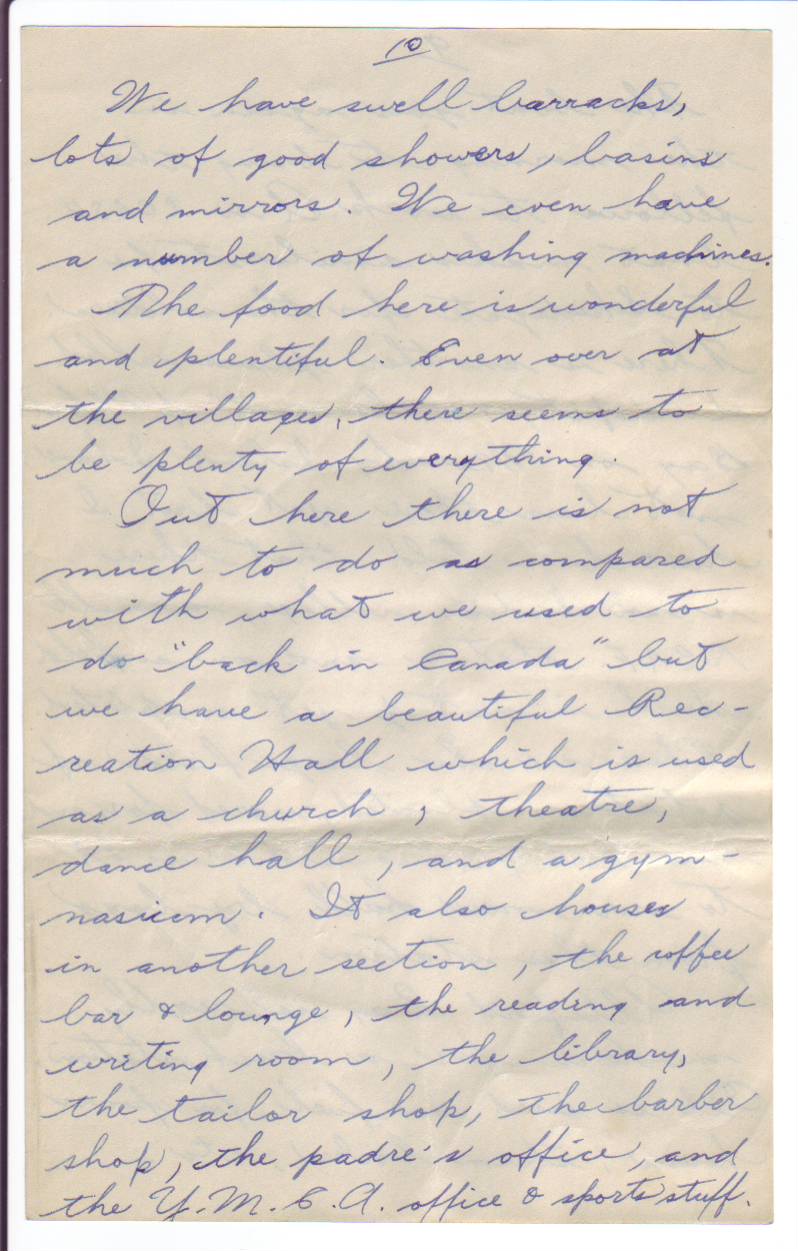 10
We have swell barracks,
lots of good showers, basins
and mirrors. We even have
a number of washing machines.
The food here is wonderful
and plentiful. Even over at
the villages, there seems to
be plenty of everything.
Out here there is not
much to do as compared
with what we used to
do "back in Canada" but
we have a beautiful Rec-
reation Hall which is used
as a church, theatre,
dance hall, and a gym-
nasium. It also houses
in another section, the coffee
bar & lounge, the reading and
writing room, the library,
the tailor shop, the barber
shop, the padre's office, and
the Y.M.C.A. office & sports stuff.